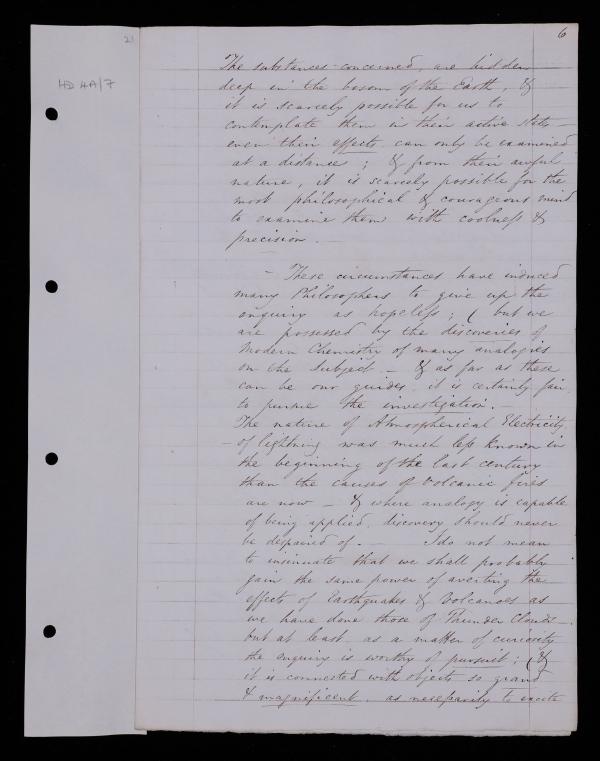 6
21
HD 4A/7
The substances concerned, are hidden
deep in the bosom of the Earth, &
it is scarcely possible for us to
contemplate them in their active state –
even their effects can only be examined
at a distance ; & from their awful
nature, it is scarcely possible for the
most philosophical & courageous mind
to examine them with coolness &
precision. —
– These circumstances have induced
many Philosophers to give up the
enquiry as hopeless ; ( but we
are possessed by the discoveries of
Modern Chemistry of many analogies
on the Subject – & as far as these
can be our guides, it is certainly fair
to pursue the investigation. –
The nature of Atmospherical Electricity,
– of lightning was much less known in
the beginning of the last century
than the causes of Volcanic fires
are now – & where analogy is capable
of being applied, discovery should never
be despaired of. – I do not mean
to insinuate that we shall probably
gain the same power of averting the
effects of Earthquakes & Volcanoes as
we have done those of Thunder Clouds –
but at least as a matter of curiosity
the enquiry is worthy of pursuit ; ( &
it is connected with objects so grand
& magnificent, as necessarily to excite